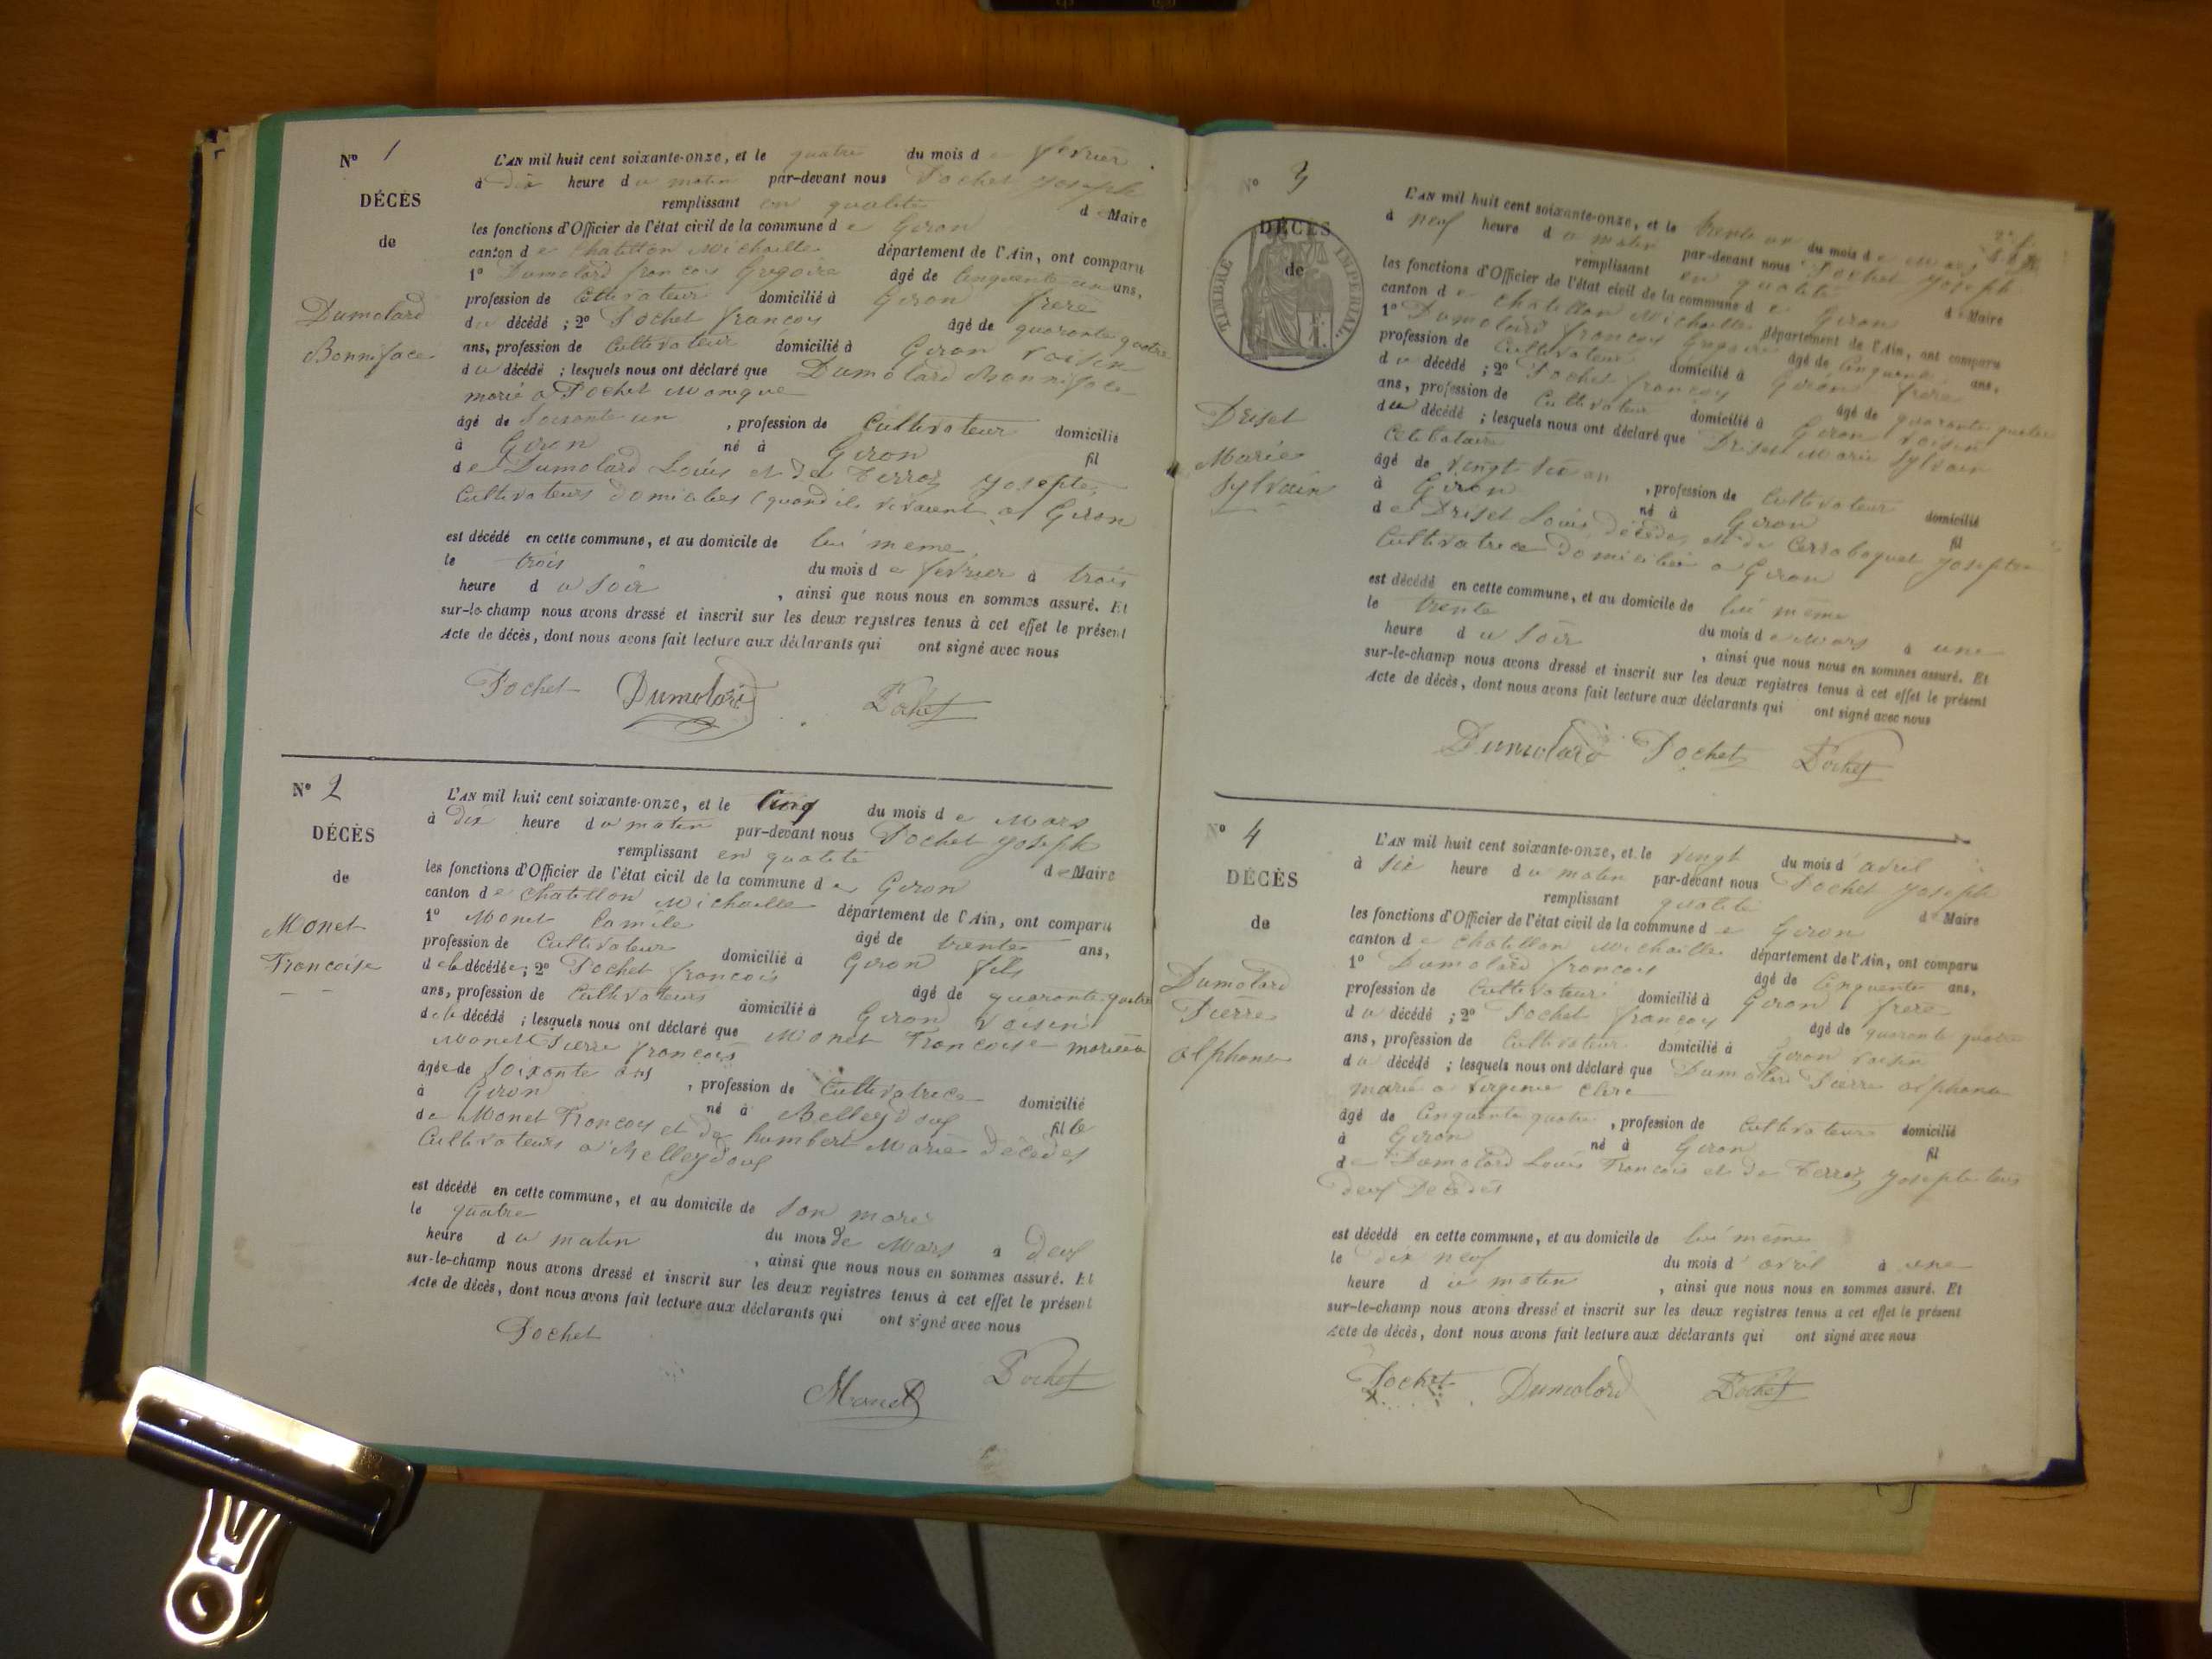 N° 1
DÉCÈS
de
Dumolard
Bonniface
L'AN mil huit cent soixante-onze, et le quatre du mois de fevrier
à dix heure du matin par-devant nous Pochet Joseph
remplissant en qualité de Maire
les fonctions d'Officier de l'état civil de la commune de Giron
canton de Chatillon Michaille département de l'Ain, ont comparu
1° Dumolard francois Gregoire âgé de Cinquente un ans,
profession de Cultivateur domicilié à Giron frere
du décédé ; 2° Pochet francois âgé de quarante quatre
ans, profession de Cultivateur domicilié à Giron voisin
du décédé ; lesquels nous ont déclaré que Dumolard Bonniface
marié a Pochet Manique
âgé de Soixante un , profession de Cultivateur domicilié
à Giron né à Giron fil
de Dumolard Louis et de Perroz Josepte
Cultivateurs domicilies (quand ils vivaient a Giron
est décédé en cette commune, et au domicile de lui meme
le trois du mois de fevrier à trois
heure du Soir , ainsi que nous nous en sommes assuré. Et
sur-le-champ nous avons dressé et inscrit sur les deux registres tenus à cet effet le présent
Acte de décès, dont nous avons fait lecture aux déclarants qui ont signé avec nous
Pochet Dumolard Pochet
N° 2
DÉCÈS
de
Monet
Francoise
L'AN mil huit cent soixante-onze, et le Cinq du mois de Mars
à Dix heure du matin par-devant nous Pochet Joseph
remplissant en qualité de Maire
les fonctions d'Officier de l'état civil de la commune de Giron
canton de Chatillon Michaille département de l'Ain, ont comparu
1° Monet Camile âgé de trente ans,
profession de Cultivateur domicilié à Giron fils
de la décédée ; 2° Pochet francois âgé de quarante quatre
ans, profession de Cultivateur domicilié à Giron voisin
de la décédé ; lesquels nous ont déclaré que Monet Francoise mariée a
Monet Pierre francois
âgée de Soixante ans , profession de Cultivatrice domicilié
à Giron né à Belleydoux fille
de Monet Francois et de humbert Marie décédés
Cultivateurs a Belleydoux
est décédé en cette commune, et au domicile de Son mari
le quatre du mois de Mars à deux
heure du matin , ainsi que nous nous en sommes assuré. Et
sur-le-champ nous avons dressé et inscrit sur les deux registres tenus à cet effet le présent
Acte de décès, dont nous avons fait lecture aux déclarants qui ont signé avec nous
Pochet Monet Pochet
N° 3
DÉCÈS
de
TIMBRE IMPERIAL.
Driset
Marie
Sylvain
L'AN mil huit cent soixante-onze, et le trente un du mois de Mars
à neuf heure du matin par-devant nous Pochet Joseph
remplissant en qualité de Maire
les fonctions d'Officier de l'état civil de la commune de Giron
canton de Chatillon Michaille département de l'Ain, ont comparu
1° Dumolard francois Gregoire âgé de Cinquente ans,
profession de Cultivateur domicilié à Giron frere
du décédé ; 2° Pochet francois âgé de quarante quatre
ans, profession de Cultivateur domicilié à Giron voisin
du décédé ; lesquels nous ont déclaré que Driset Marie Sylvain
Célibataire
âgé de vingt an , profession de Cultivateur domicilié
à Giron né à Giron fil
de Driset Louis décédé, et de Josepte
Cultivatrice domiciliée a Giron
est décédé en cette commune, et au domicile de lui même
le trente du mois de Mars à une
heure du Soir , ainsi que nous nous en sommes assuré. Et
sur-le-champ nous avons dressé et inscrit sur les deux registres tenus à cet effet le présent
Acte de décès, dont nous avons fait lecture aux déclarants qui ont signé avec nous
Dumolard Pochet Pochet
N° 4
DÉCÈS
de
Dumolard
Pierre
alphonse
L'AN mil huit cent soixante-onze, et le vingt du mois d'avril
à Six heure du matin par-devant nous Pochet Joseph
remplissant qualité de Maire
les fonctions d'Officier de l'état civil de la commune de Giron
canton de Chatillon Michaille département de l'Ain, ont comparu
1° Dumolard francois âgé de Cinquente ans,
profession de Cultivateur domicilié à Giron frere
du décédé ; 2° Pochet francois âgé de quarante quatre
ans, profession de Cultivateur domicilié à Giron voisin
du décédé ; lesquels nous ont déclaré que Dumolard Pierre alphonse
marié a Virginie Clerc
âgé de Cinquente quatre , profession de Cultivateur domicilié
à Giron né à Giron fil
de Dumolard Louis Francois et de Perroz Josepte tous
deux Décédés
est décédé en cette commune, et au domicile de lui même
le dix neuf du mois d'avril à une
heure du matin , ainsi que nous nous en sommes assuré. Et
sur-le-champ nous avons dressé et inscrit sur les deux registres tenus à cet effet le présent
Acte de décès, dont nous avons fait lecture aux déclarants qui ont signé avec nous
Pochet Dumolard Pochet